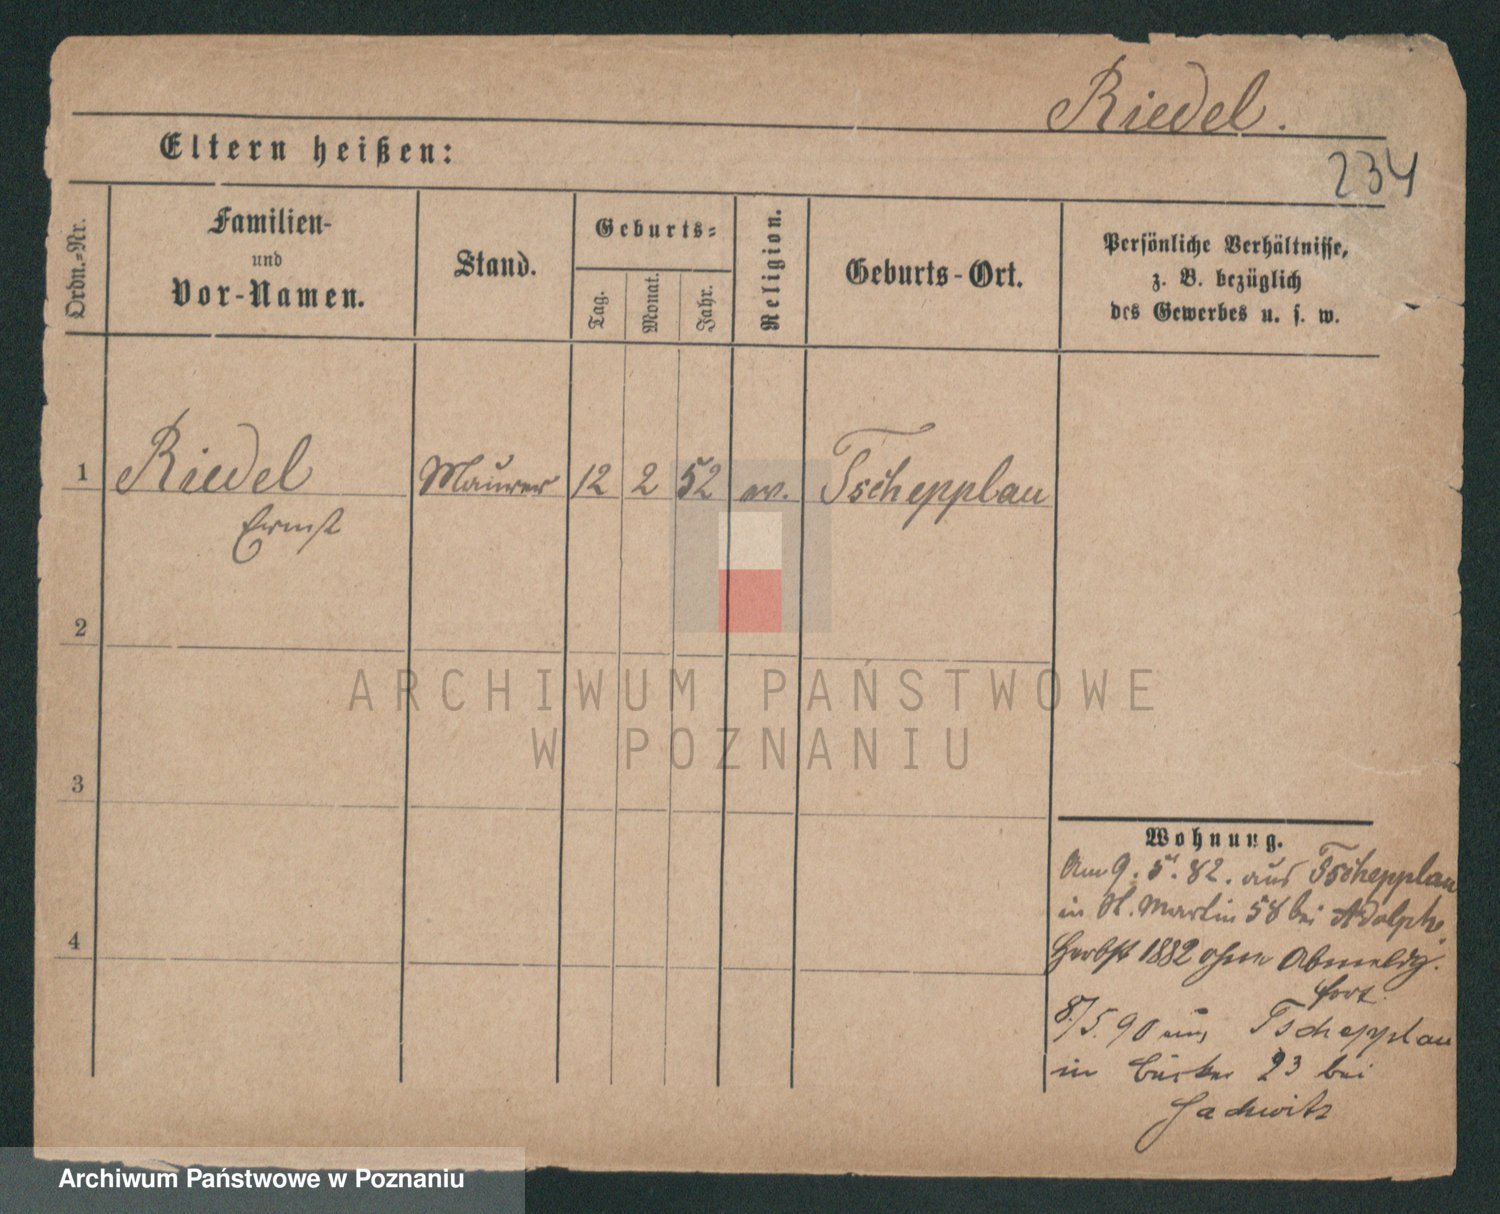 Riedel.
234
Eltern heißen:
Ordn.-Nr.
Familien-
und
Vor-Namen.
Stand.
Geburts-
Tag.
Monat.
Jahr.
Religion.
Geburts-Ort.
Persönliche Verhältnisse,
z. B. bezüglich
des Gewerbes u. s. w.
1 Riedel Maurer 12 2 52 ev. Tschepplau
Ernst
2
3
4
ARCHIWUM PAŃSTWOWE
W POZNANIU
Wohnung.
Am 9. 5. 82. aus Tschepplau
in St. Martin 58 bei Adolph.
Herbst 1882 ohne Abmeldg.
fort.
8/5. 90 aus Tschepplau
in 23 bei
Archiwum Państwowe w Poznaniu